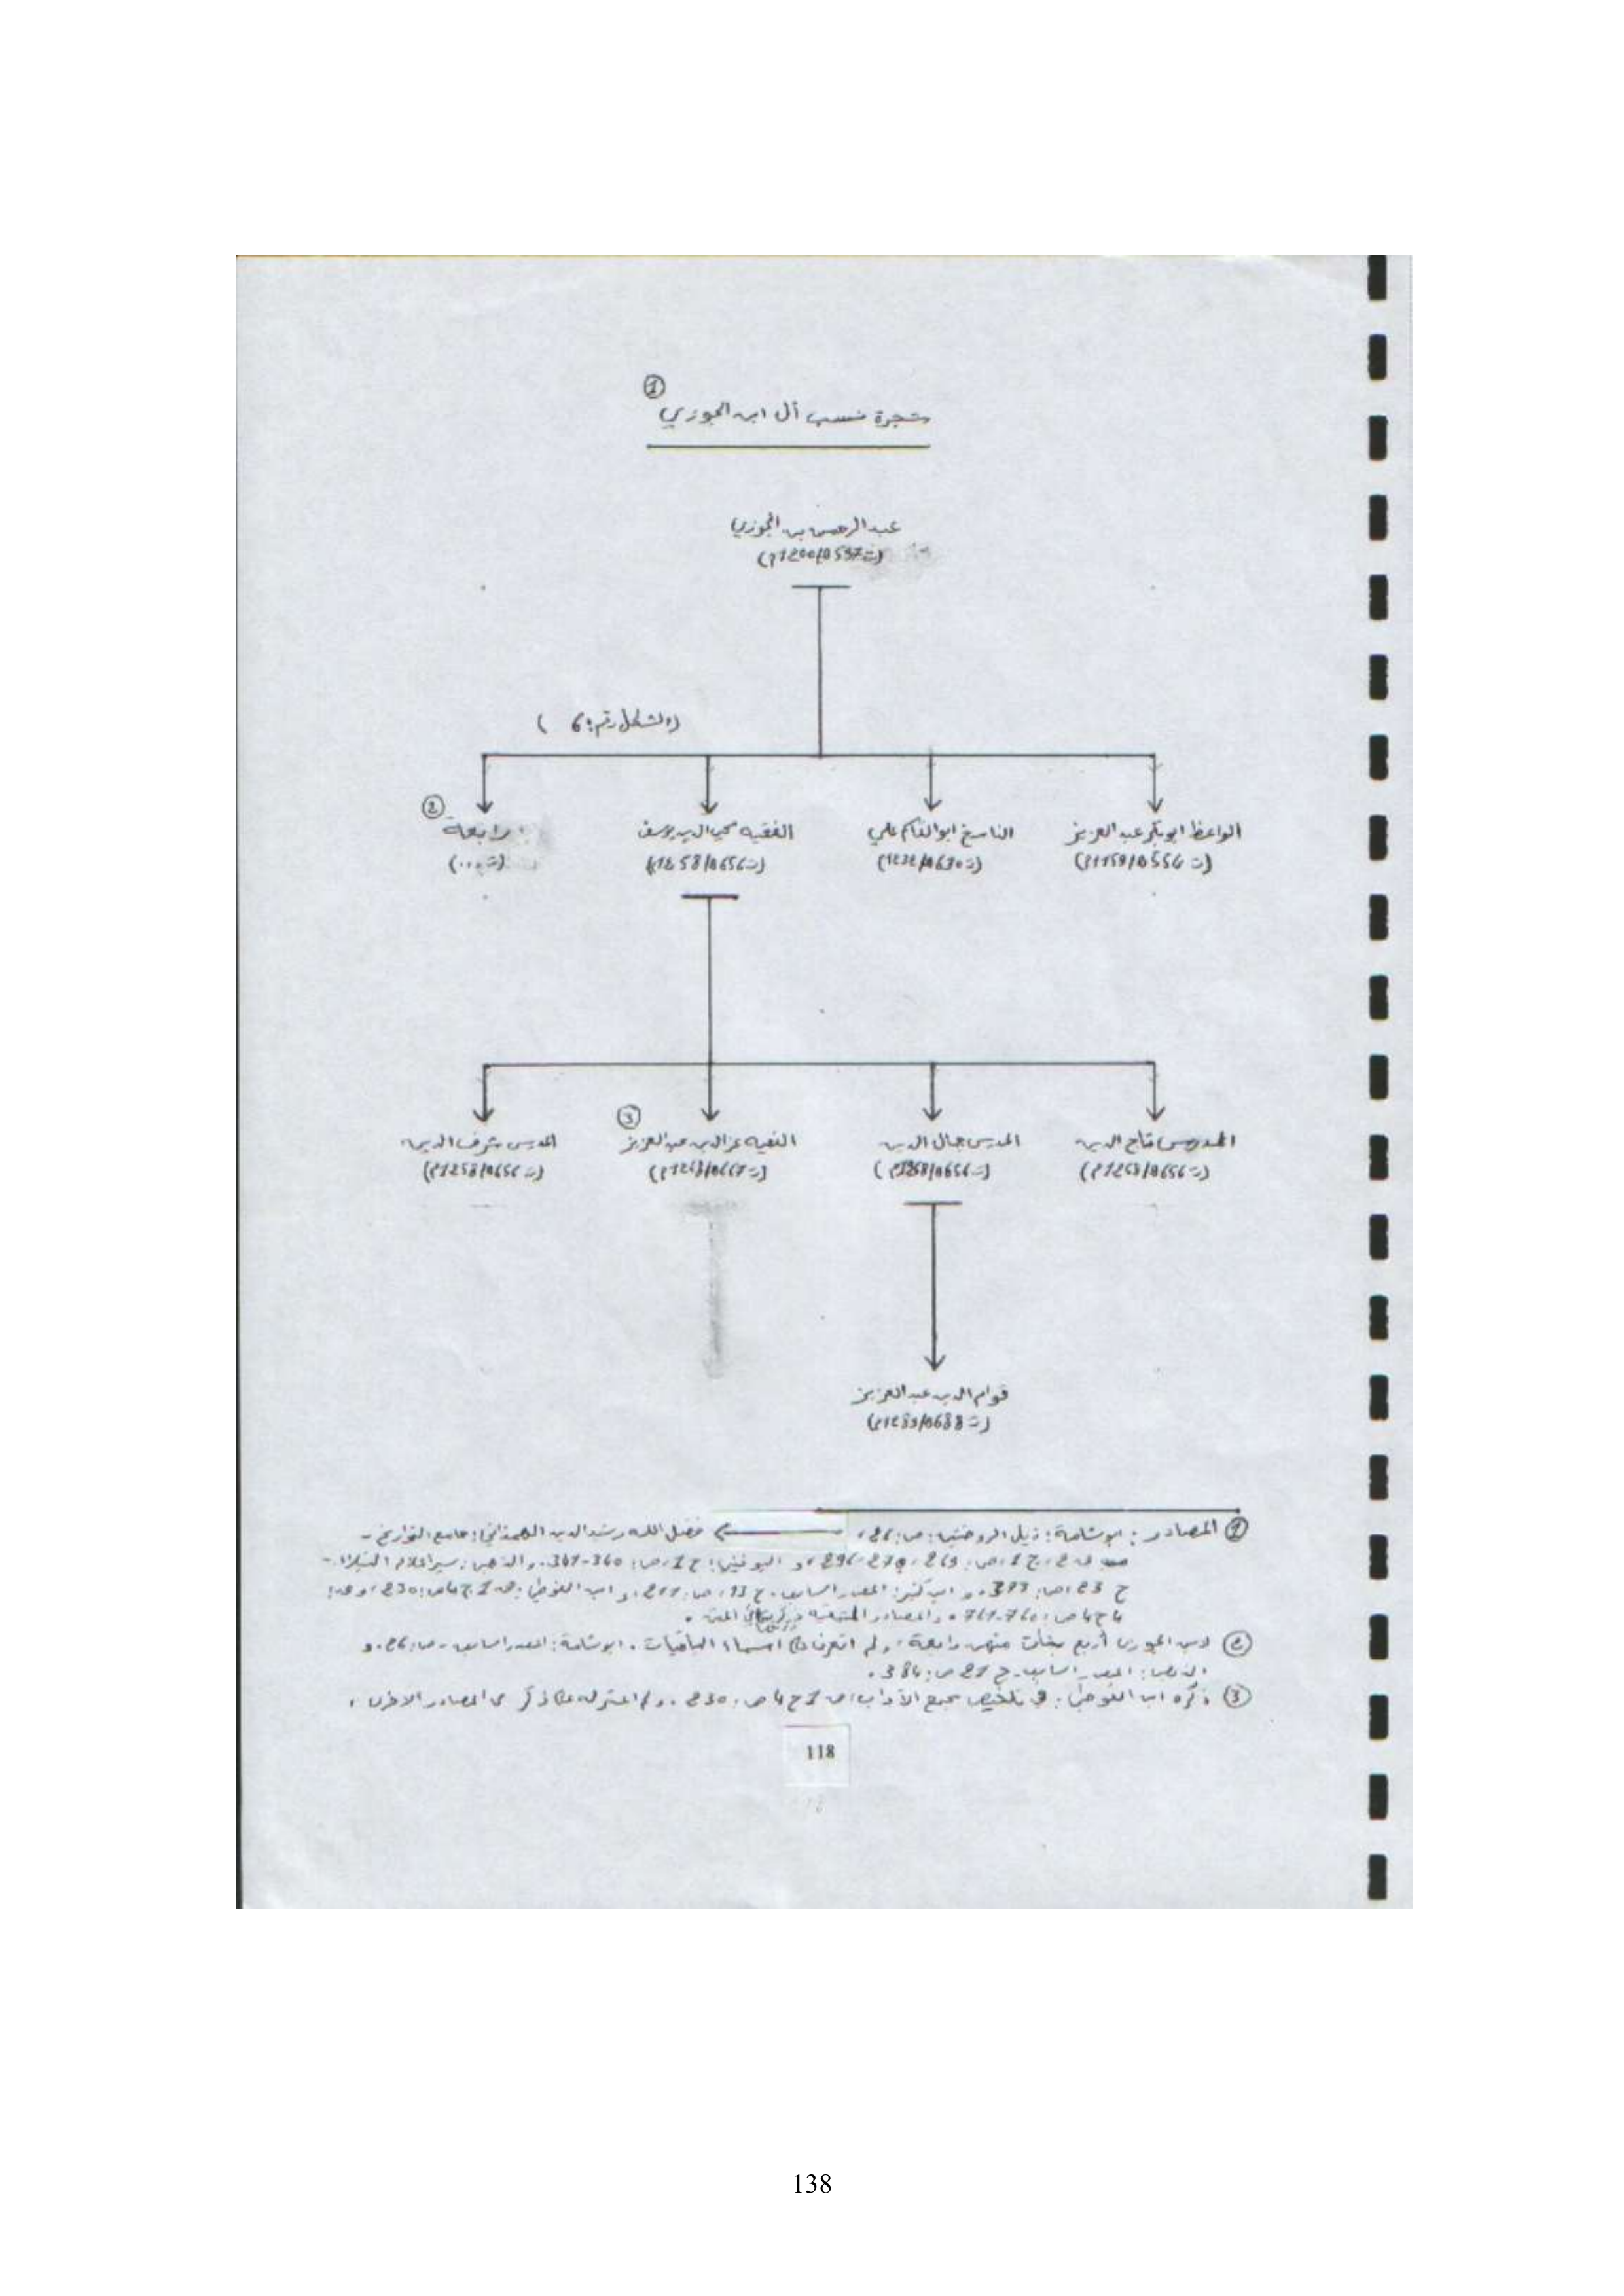 ①
شجرة نسب آل ابن الجوزي
عبد الرحمن بن الجوزي
(ت 597ه/1200م)
(الشكل رقم: 6 )
الواعظ ابو بكر عبد العزيز
(ت 554ه/1159م)
الناسخ ابو القاسم علي
(ت 630ه/1232)
الفقيه محي الدين يوسف
(ت 656ه/1258)
② رابعة
(ت ...)
المدرس تاج الدين
(ت 656ه/1258م)
المدرس جمال الدين
(ت 656ه/1258م)
③
الفقيه عز الدين عبد العزيز
المدرس شرف الدين
(ت 656ه/1258م)
قوام الدين عبد العزيز
(ت 688ه/1289م)
① المصادر: ابو شامة: ذيل الروضتين، ص: 26، فضل الله رشيد الدين الهمذاني: جامع التواريخ -
ج 1، ص: 340-341. و الذهبي: سير اعلام النبلاء. -
ج 23، ص: و ابن كثير: المصدر السابق. ج 13، ص: و ابن الفوطي: ق 1 ج 4 ص: 230، و ق:
4 ج 4 ص: 760-761. و المصادر المتن.
② لابن الجوزي أربع بنات منهن رابعة، و لم اتعرف على اسماء الباقيات. ابو شامة: المصدر السابق - ص: 26. و
الذهبي: المصدر السابق. ج 21 ص: 384.
③ ذكره ابن الفوطي: في تلخيص مجمع الآداب، ق 1 ج 4 ص: 230. و لم اعثر له على ذكر في المصادر الاخرى.
118
138